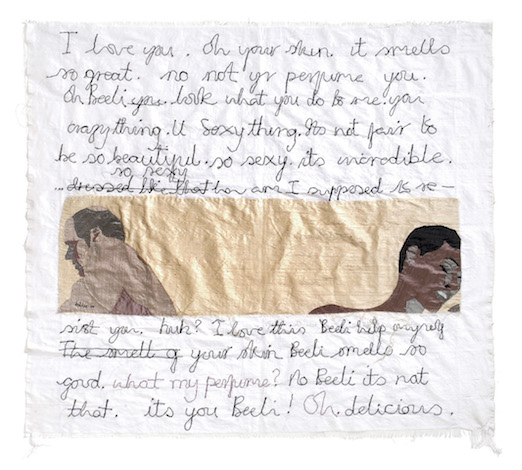 I love you. Oh your skin. it smells
so great. no not yr perfume you.
Oh Beeli you. look what you do to me. you
crazy thing. U Sexy thing. Its not fair to
be so beautiful. so sexy. its incredible.
so sexy
... dressed like that how am I supposed to re-
sist you. huh? I love this Beeli help
The smell of your skin Beeli smells so
good. what my perfume? No Beeli its not
that. its you Beeli! Oh. delicious.